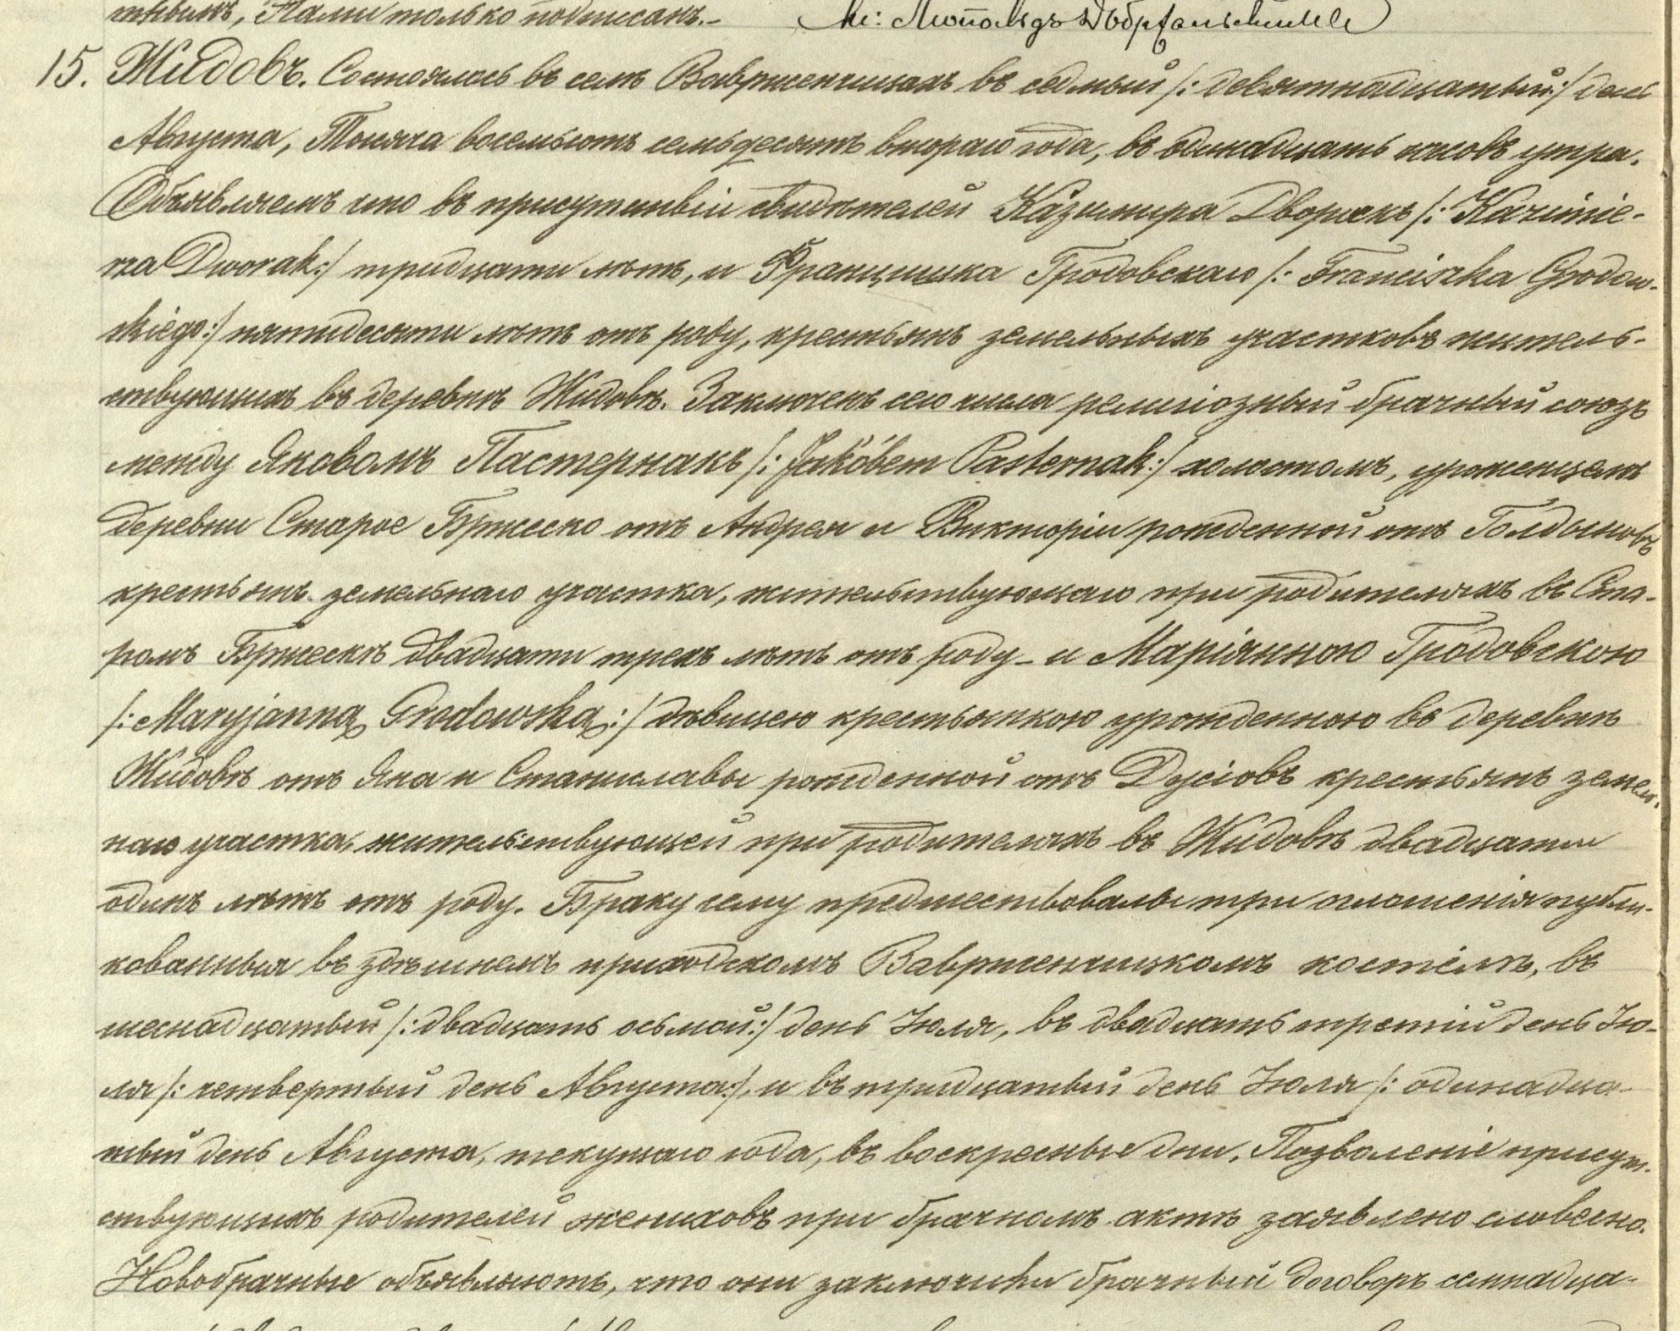 тнымъ, Нами только подписанъ.-
15. Жидовъ. Состоялось въ селѣ Вавржентицахъ въ седмый /: девятнадцатый:/ день
Августа, Тысяча восемьсотъ семьдесятъ втораго года, въ одинадцать часовъ утра.
Объявляемъ что въ присутствіи свидѣтелей Казимира Дворакъ /: Kazimie-
rza Dworak:/ тридцати лѣтъ, и Францишка Гродовскаго /: Franciszka Grodow-
skiego:/ пятидесяти лѣтъ отъ роду, крестьянъ земельныхъ участковъ житель-
ствующихъ въ деревнѣ Жидовѣ. Заключенъ сего числа религіозный брачный союзъ
между Яковомъ Пастернакъ /: Jakóbem Pasternak:/ холостомъ, уроженцемъ
деревни Старое Бржеско отъ Андрея и Викторіи рожденной отъ Голдыновъ
крестьянъ земельнаго участка, жительствующаго при родителяхъ въ Ста-
ромъ Бржескѣ двадцати трехъ лѣтъ отъ роду - и Маріянною Гродовскою
/: Maryjanną Grodowską:/ дѣвицею крестьянкою урожденною въ деревнѣ
Жидовѣ отъ Яна и Станиславы рожденной отъ крестьянъ земель-
наго участка, жительствующей при родителяхъ въ Жидовѣ двадцати
одинъ лѣтъ отъ роду. Браку сему предшествовали три оглошенія публи-
кованныя въ здѣшнемъ приходскомъ Вавржентицкомъ костёлѣ, въ
шеснадцатый /: двадцать осьмой:/ день Іюля, въ двадцать третій день Ію-
ля /: четвертый день Августа:/, и въ тридцатый день Іюля /: одинадца-
тый день Августа, текущаго года, въ воскресные дни. Позволеніе присут-
ствующихъ родителей жениховъ при брачномъ актѣ заявлено словесно.
Новобрачные объявляютъ, что они заключили брачный договоръ семнадца-